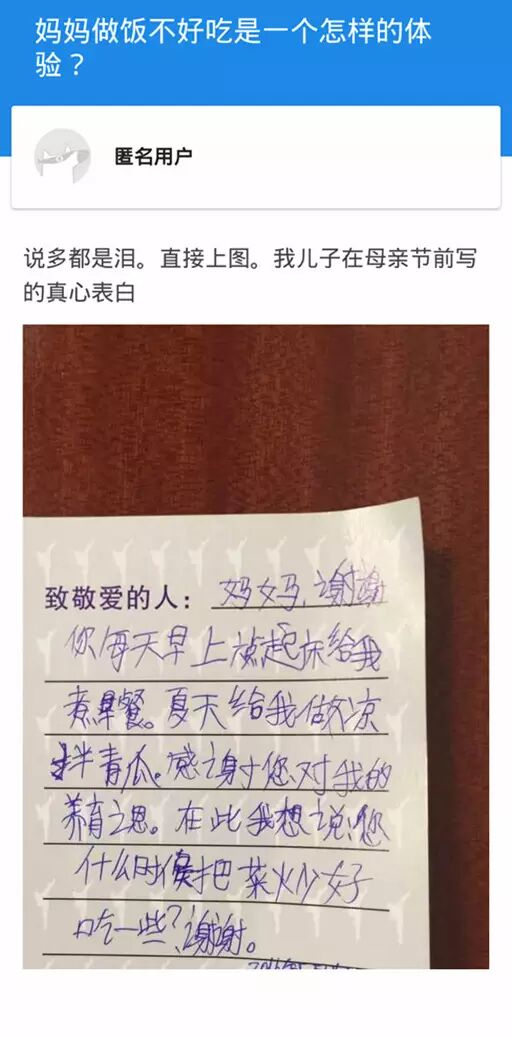 妈妈做饭不好吃是一个怎样的体
验？
匿名用户
说多都是泪。直接上图。我儿子在母亲节前写
的真心表白
致敬爱的人：妈妈，谢谢
你每天早上 起床给我
煮早餐。夏天给我做凉
拌青瓜。感谢您对我的
养育之恩。在此我想说：您
什么时候把菜炒好
吃一些？谢谢。